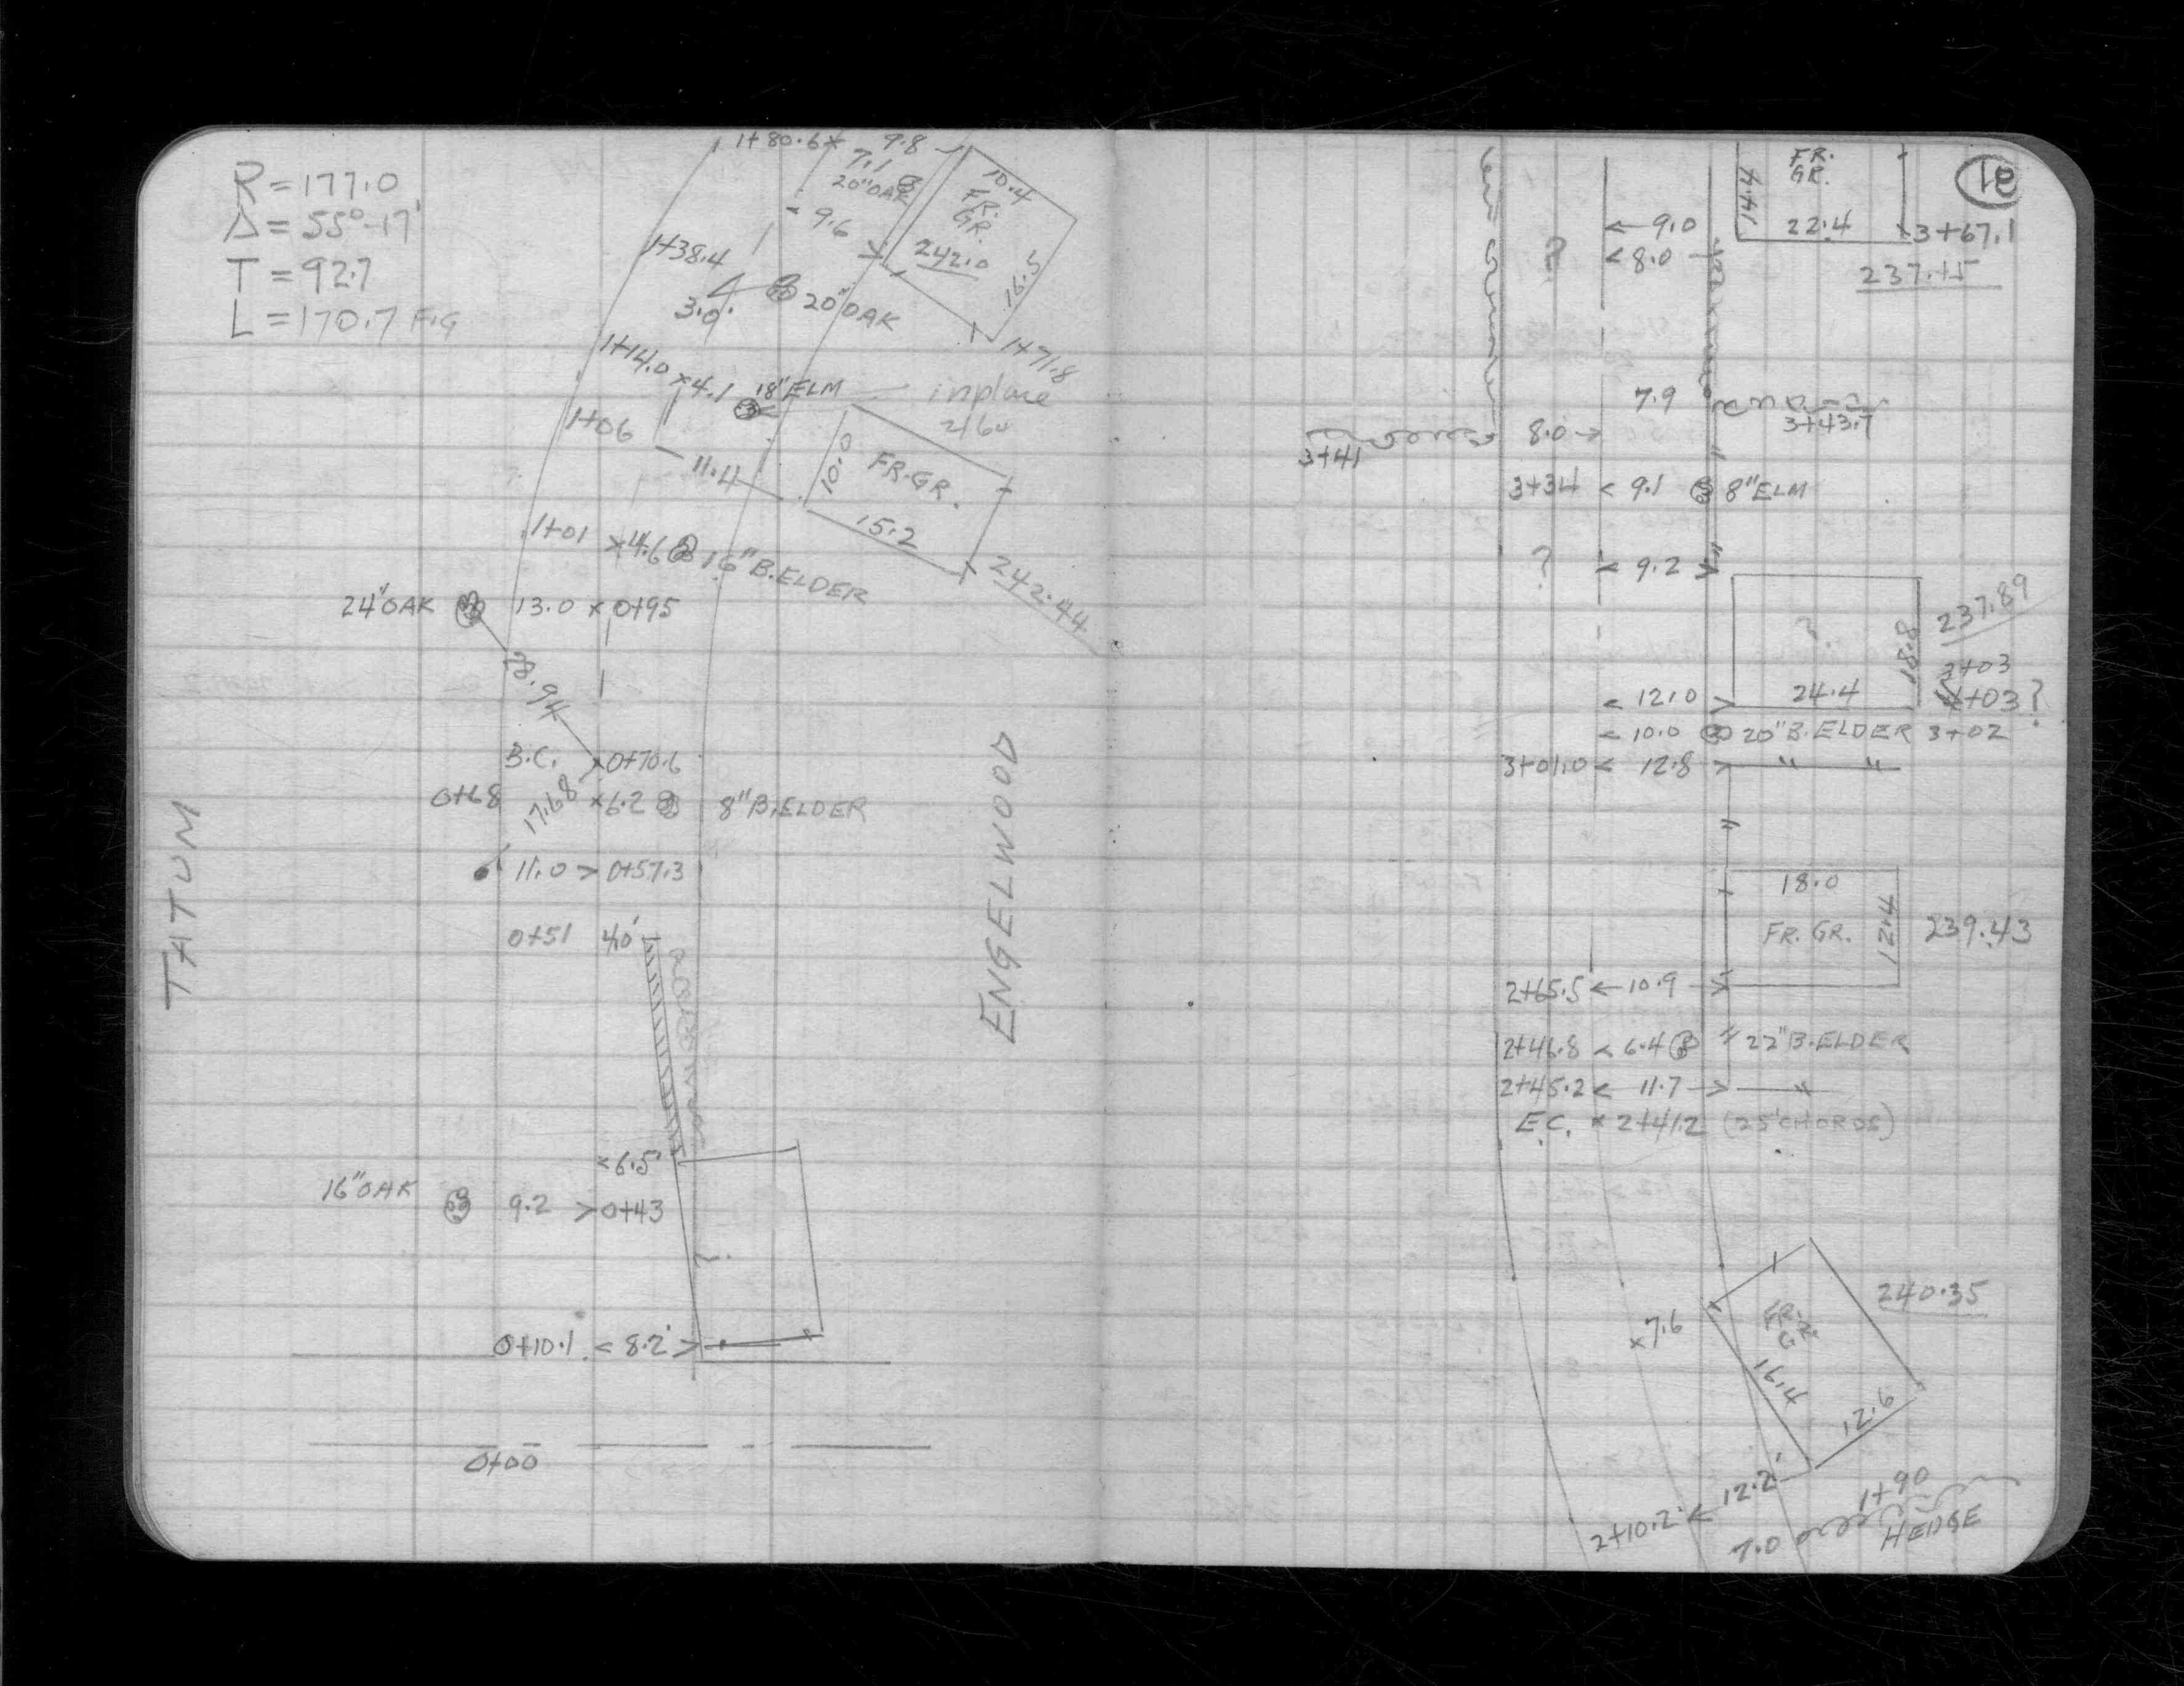 R = 177.0
Δ = 55°-17'
T = 92.7
L = 170.7 FIG
1+80.6 x 9.8
7.1
20" OAK
9.6
10.4
FR.
GR.
242.0
16.5
1+71.8
1+38.4
3.0'
20" OAK
1+14.0 x 4.1 18" ELM — inplace
2/64
1+06
11.4
10.0 FR. GR.
15.2
242.44
1+01 x 4.6 16" B.ELDER
24" OAK 13.0 x 0+95
B.C. x 0+70.6
17.68
0+68 x 6.2 8" B.ELDER
11.0 > 0+57.3
0+51 4.0'
TATUM
ENGELWOOD
< 6.5'
16" OAK 9.2 > 0+43
?
0+10.1 < 8.2' >
0+00
FR.
GR.
14.4
22.4
3+67.1
237.15
← 9.0
? < 8.0
7.9
3+43.7
8.0 →
3+41
3+34 < 9.1 8" ELM
? < 9.2 >
?
18.8
237.89
3+03
4+03?
< 12.0 > 24.4
< 10.0 20" B.ELDER 3+02
3+01.0 < 12.8 > " "
18.0
FR. GR. 12.4 239.43
2+65.5 ← 10.9 →
2+46.8 < 6.4 22" B.ELDER
2+45.2 < 11.7 → "
E.C. x 2+41.2 (25' CHORDS)
240.35
x 7.6
FR.
G.
16.4
12.6
2+10.2 ← 12.2'
1+90
7.0 HEDGE